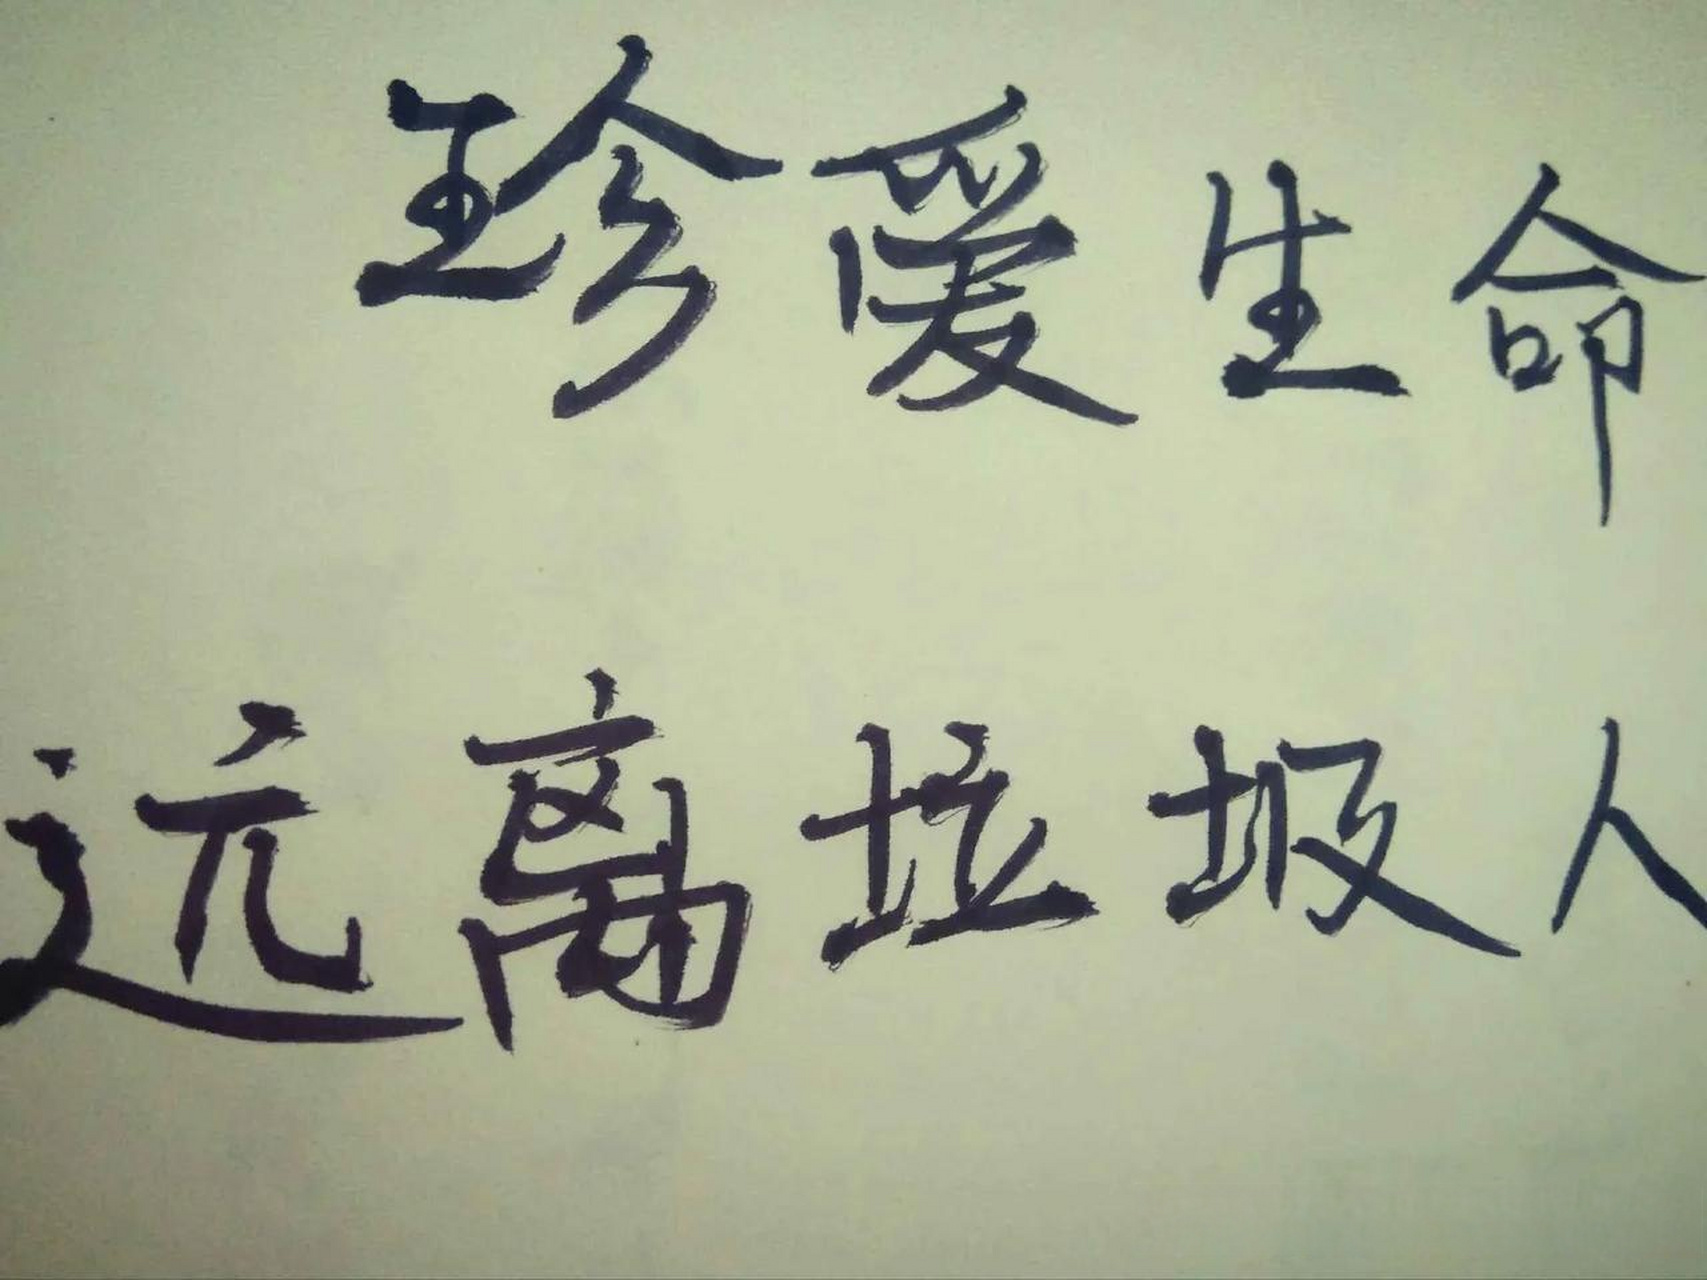 珍爱生命
远离垃圾人